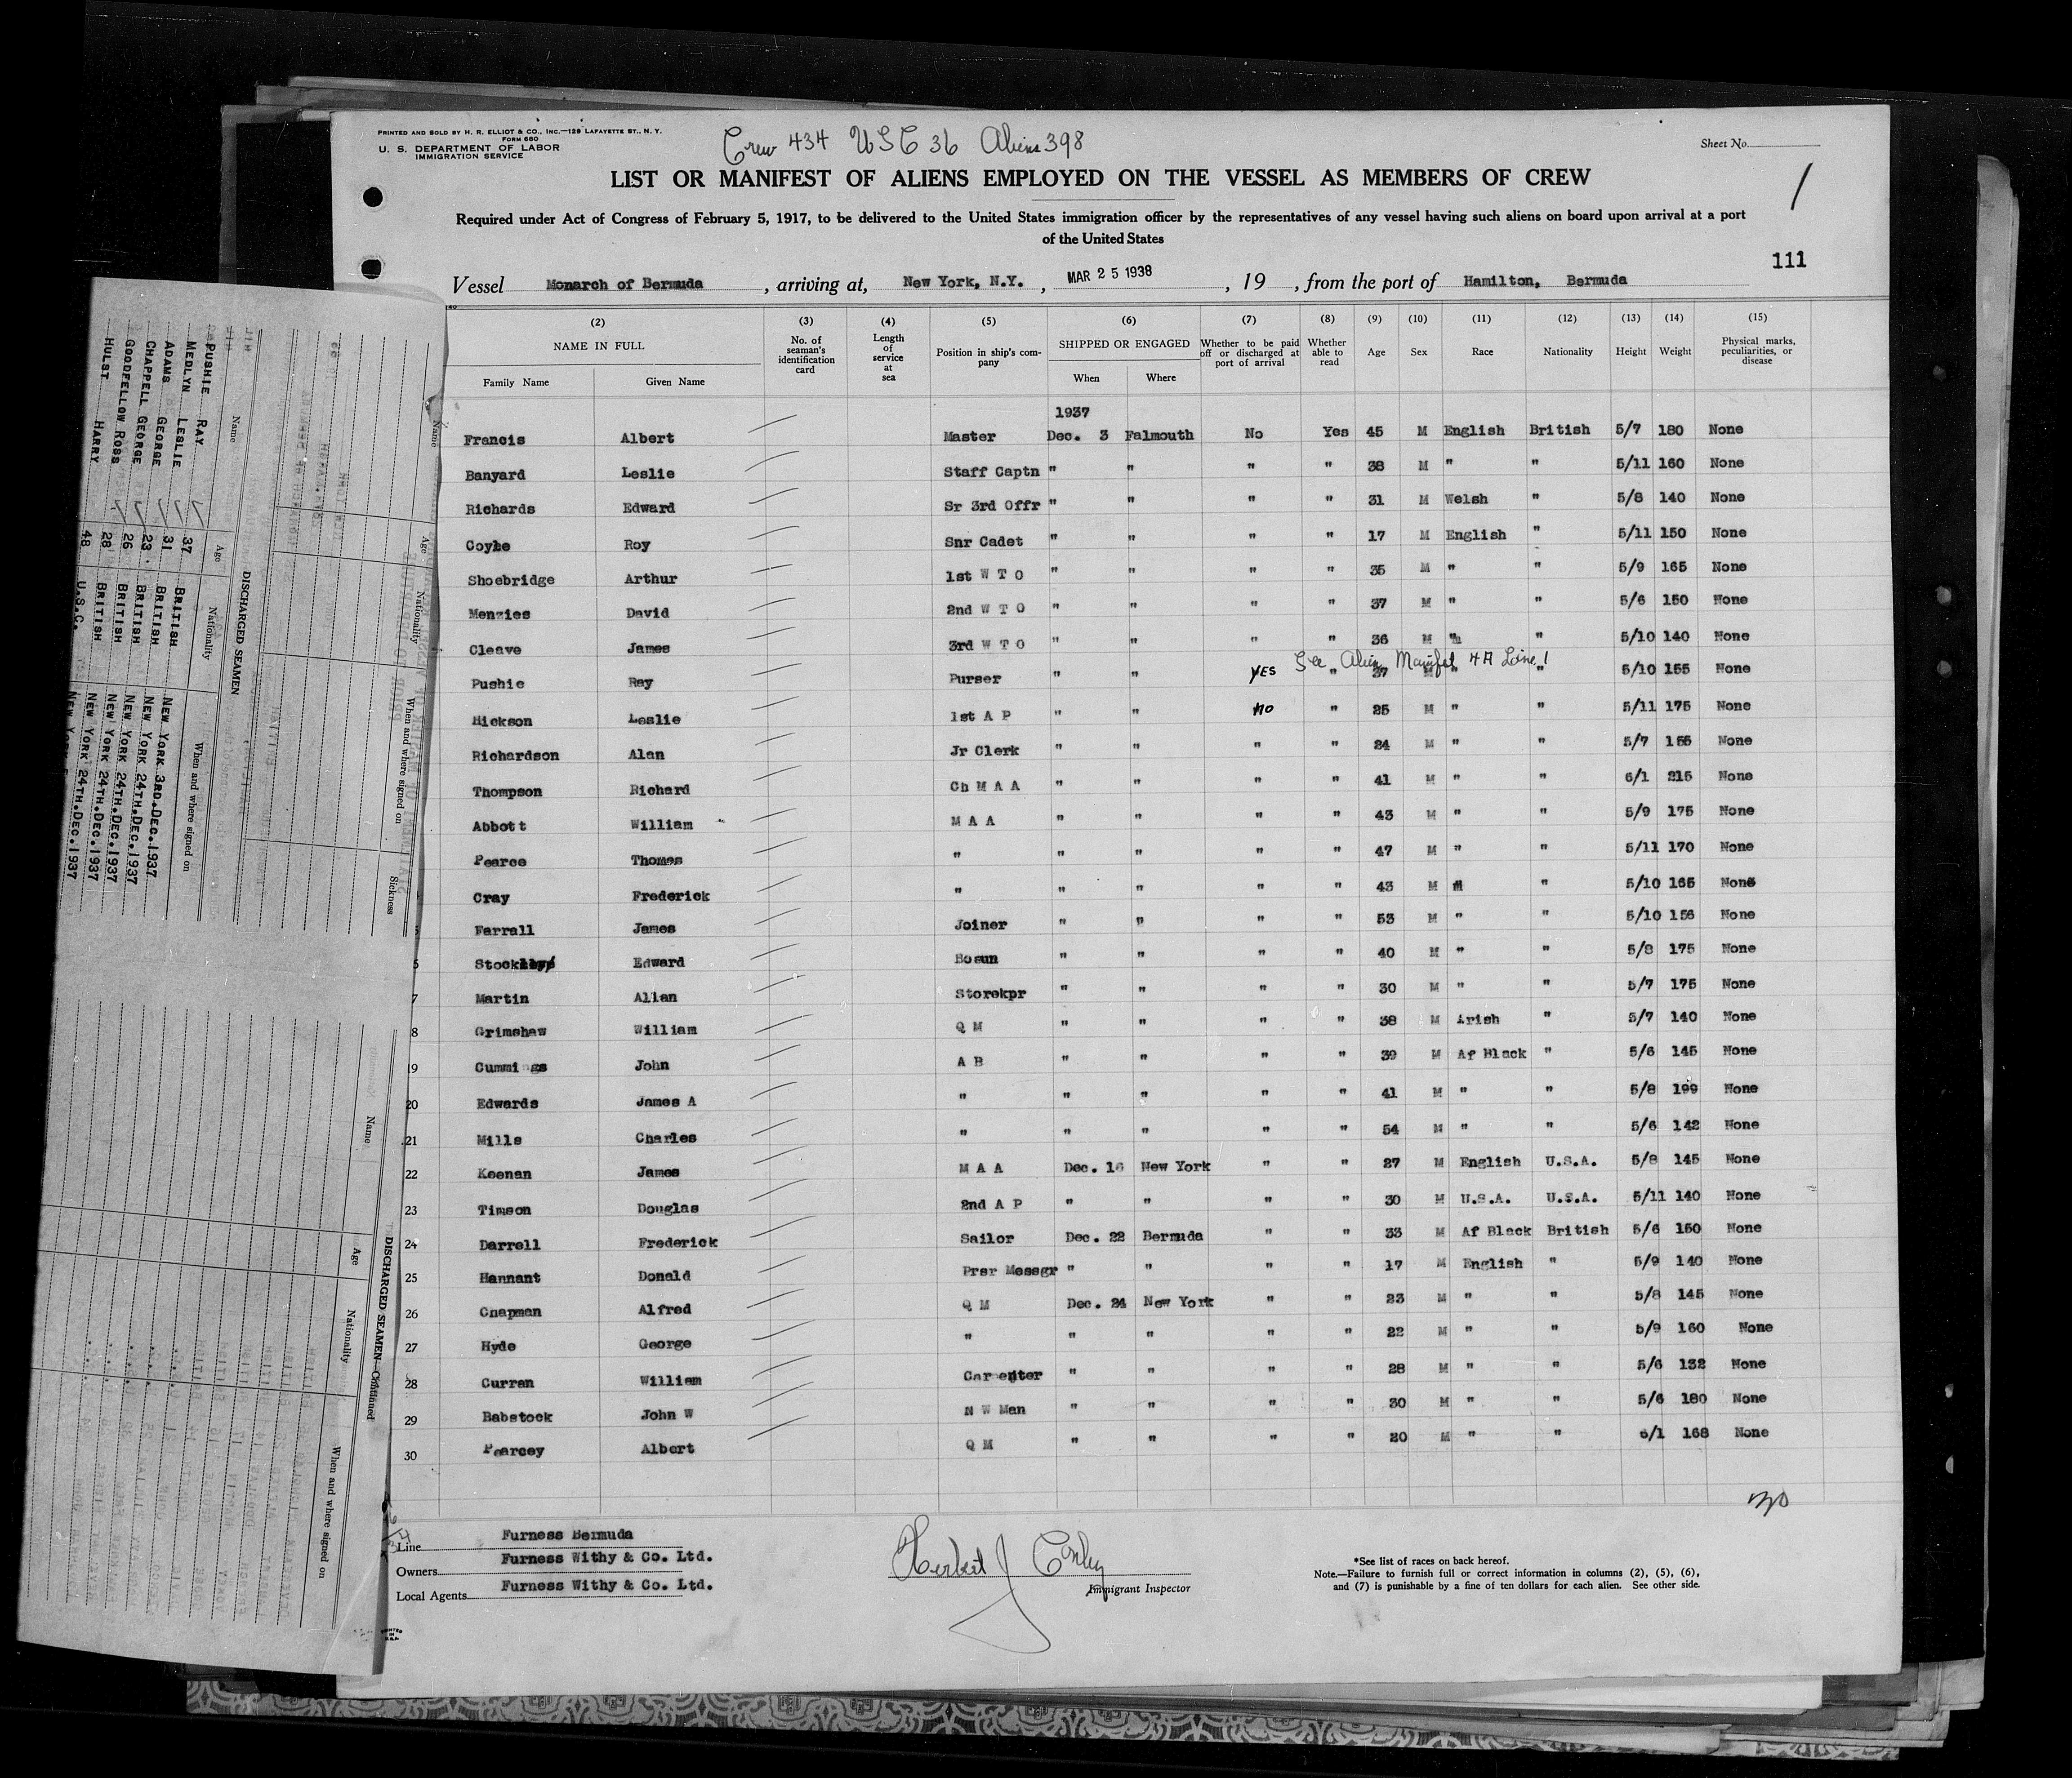 PRINTED AND SOLD BY H. R. ELLIOT & CO., INC.—129 LAFAYETTE ST., N. Y.
FORM 680
U. S. DEPARTMENT OF LABOR
IMMIGRATION SERVICE
Crew 434 USC 36 Aliens 398
Sheet No.
1
LIST OR MANIFEST OF ALIENS EMPLOYED ON THE VESSEL AS MEMBERS OF CREW
Required under Act of Congress of February 5, 1917, to be delivered to the United States immigration officer by the representatives of any vessel having such aliens on board upon arrival at a port
of the United States
111
Vessel Monarch of Bermuda, arriving at, New York, N.Y., MAR 25 1938, 19 , from the port of Hamilton, Bermuda
(2) (3) (4) (5) (6) (7) (8) (9) (10) (11) (12) (13) (14) (15)
NAME IN FULL Family Name Given Name No. of seaman's identification card Length of service at sea Position in ship's company SHIPPED OR ENGAGED When Where Whether to be paid off or discharged at port of arrival Whether able to read Age Sex Race Nationality Height Weight Physical marks, peculiarities, or disease
1937
Francis Albert Master Dec. 3 Falmouth No Yes 45 M English British 5/7 180 None
Banyard Leslie Staff Captn " " " " 38 M " " 5/11 160 None
Richards Edward Sr 3rd Offr " " " " 31 M Welsh " 5/8 140 None
Coyle Roy Snr Cadet " " " " 17 M English " 5/11 150 None
Shoebridge Arthur 1st W T O " " " " 35 M " " 5/9 165 None
Menzies David 2nd W T O " " " " 37 M " " 5/6 150 None
Cleave James 3rd W T O " " " " 36 M " " 5/10 140 None
See Alien Manifest 4A Line 1
Pushie Ray Purser " " YES " 37 M " " 5/10 155 None
Hickson Leslie 1st A P " " NO " 25 M " " 5/11 175 None
Richardson Alan Jr Clerk " " " " 24 M " " 5/7 155 None
Thompson Richard Ch M A A " " " " 41 M " " 6/1 215 None
Abbott William M A A " " " " 43 M " " 5/9 175 None
Pearce Thomas " " " " " 47 M " " 5/11 170 None
Cray Frederick " " " " " 43 M " " 5/10 165 None
Farrall James Joiner " " " " 53 M " " 5/10 156 None
Edward Bosun " " " " 40 M " " 5/8 175 None
7 Martin Allan Storekpr " " " " 30 M " " 5/7 175 None
8 Grimshaw William Q M " " " " 38 M Irish " 5/7 140 None
19 Cummings John A B " " " " 39 M Af Black " 5/6 145 None
20 Edwards James A " " " " " 41 M " " 5/8 199 None
21 Mills Charles " " " " " 54 M " " 5/6 142 None
22 Keenan James M A A Dec. 16 New York " " 27 M English U.S.A. 5/8 145 None
23 Timson Douglas 2nd A P " " " " 30 M U.S.A. U.S.A. 5/11 140 None
24 Darrell Frederick Sailor Dec. 22 Bermuda " " 33 M Af Black British 5/6 150 None
25 Hannant Donald Prsr Messgr " " " " 17 M English " 5/9 140 None
26 Chapman Alfred Q M Dec. 24 New York " " 23 M " " 5/8 145 None
27 Hyde George " " " " " 22 M " " 5/9 160 None
28 Curran William Carpenter " " " " 28 M " " 5/6 132 None
29 Babstock John W N W Man " " " " 30 M " " 5/6 180 None
30 Pearcey Albert Q M " " " " 20 M " " 6/1 168 None
30
Line Furness Bermuda
Owners Furness Withy & Co. Ltd.
Local Agents Furness Withy & Co. Ltd.
Herbert J Conley
Immigrant Inspector
*See list of races on back hereof.
Note.—Failure to furnish full or correct information in columns (2), (5), (6),
and (7) is punishable by a fine of ten dollars for each alien. See other side.
PRINTED IN U.S.A.
Name Age Nationality When and where signed on Sickness
DISCHARGED SEAMEN
Name Age Nationality When and where signed on
PUSHIE RAY 37 BRITISH NEW YORK 3RD.DEC.1937
MEDLYN LESLIE 31 BRITISH NEW YORK 24TH.DEC.1937
ADAMS GEORGE 23 BRITISH NEW YORK 24TH.DEC.1937
CHAPPELL GEORGE 26 BRITISH NEW YORK 24TH.DEC.1937
GOODFELLOW ROSS 28 BRITISH NEW YORK 24TH.DEC.1937
HULST HARRY 48 U.S.C. NEW YORK 24TH.DEC.1937
DISCHARGED SEAMEN—Continued
Name Age Nationality When and where signed on